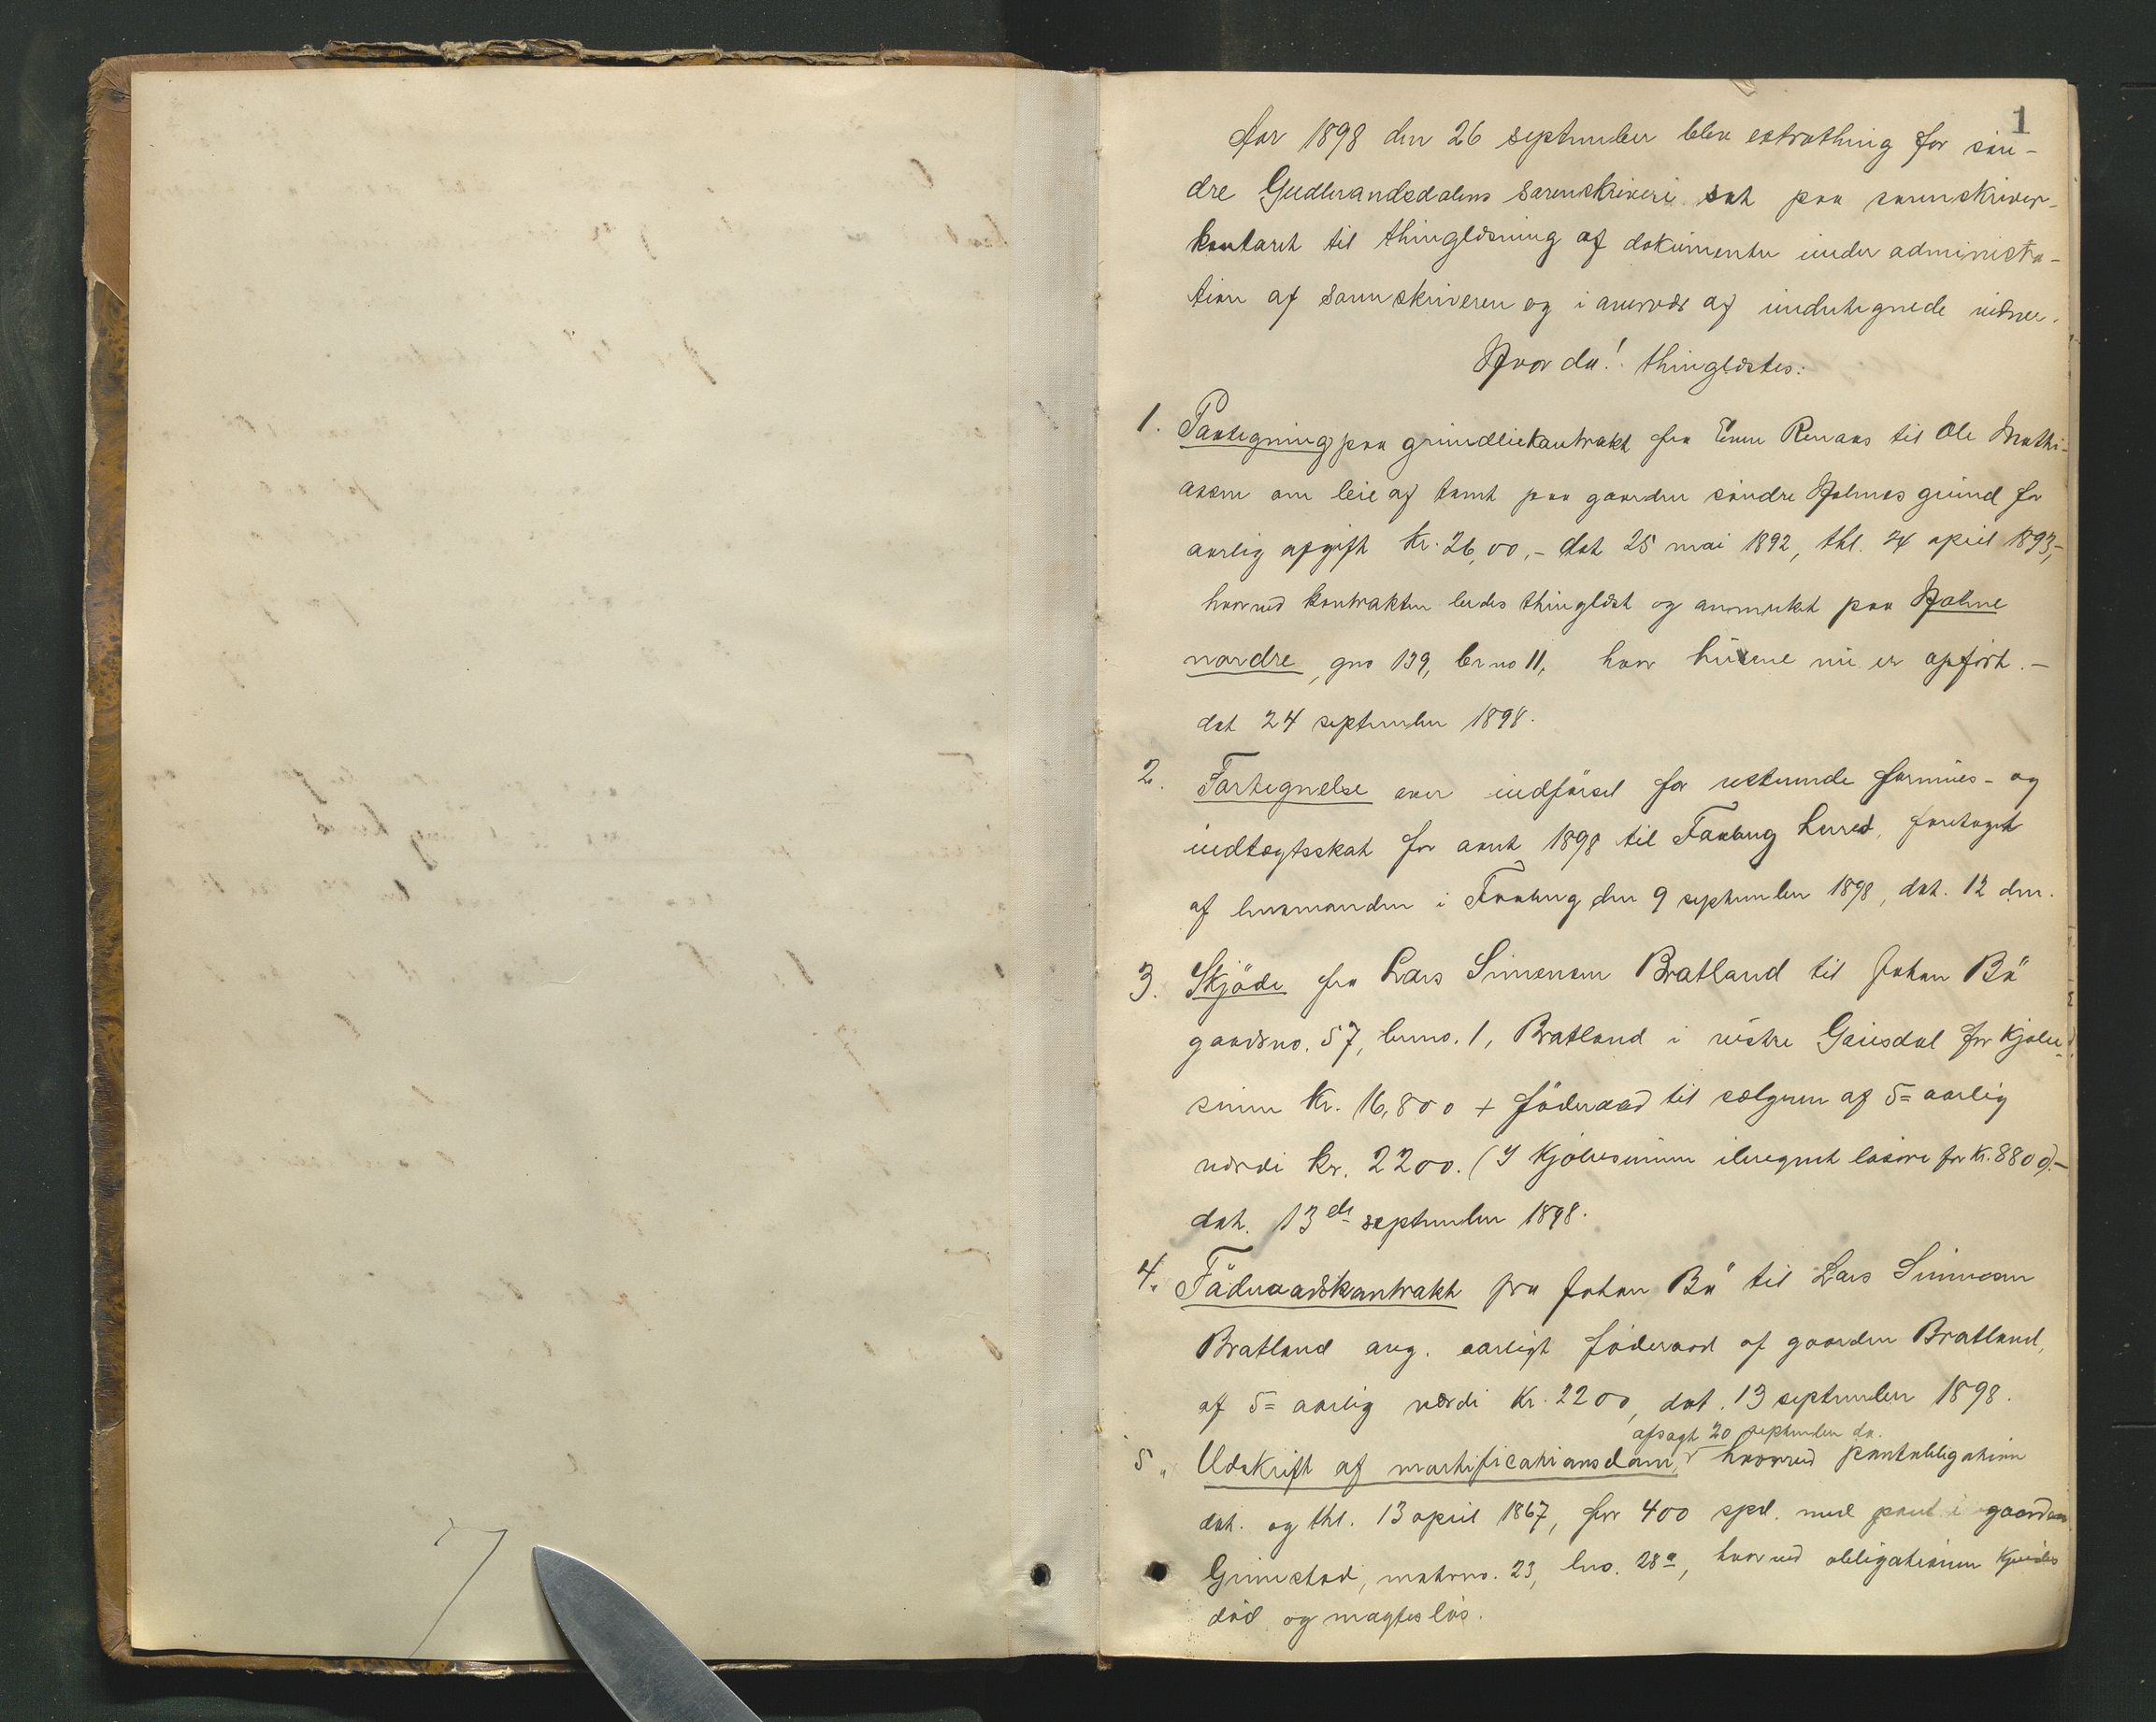 1
Aar 1898 den 26 september blev extrathing for søn-
dre Gudbrandsdalens sorenskriveri sat paa sorenskriver-
kontoret til thinglæsning af dokumenter under administra-
tion af sorenskriveren og i overvær af undertegnede vidner.
Hvor da! thinglæstes:
1. Paategning paa grundleiekontrakt fra Even Renaas til Ole Mathi-
asen om leie af tomt paa gaarden søndre Holmes grund for
aarlig afgift Kr. 26,00,- dat 25 mai 1892, thl. 24 april 1893,-
hvorved kontrakten bedes thinglæst og anmærket paa Holme
nordre, gno 139, brno 11, hvor husene nu er opført. -
dat 24 september 1898.
2. Fortegnelse over indførsel for resterende formues- og
indtægtsskat for aaret 1898 til Faaberg herred, foretaget
af lensmanden i Faaberg den 9 september 1898, dat. 12 dm.
3. Skjöde fra Lars Simensen Bratland til Johan Bö
gaardsno. 57, brno. 1, Bratland i vestre Gausdal for kjøbe-
sum Kr. 16,800 + föderaad til sælgeren af 5= aarlig
værdi kr. 2200. (I kjøbesummen iberegnet løsøre for kr. 8800).-
dat. 13de september 1898.
4. Föderaadskontrakt fra Johan Bö til Lars Simensen
Bratland ang. aarligt föderaad af gaarden Bratland,
af 5= aarlig værdi Kr. 2200, dat. 13 september 1898.
afsagt 20 september da.
5. Udskrift af mortificationsdom, hvorved pantobligation
dat. og thl. 13 april 1867, for 400 spd. med pant i gaarden
Grimstad, matrno. 23, lno. 28a, hvorved obligationen kjendes
död og magteslös.
7